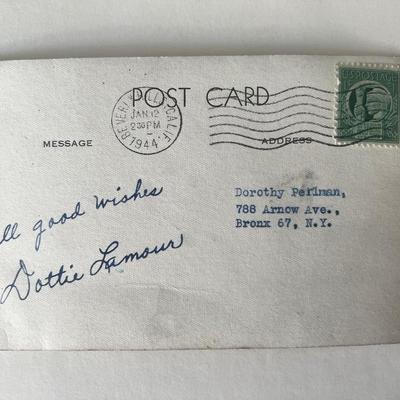 POST CARD
BEVERLY HILLS, CALIF.
JAN 12
2 30 PM
1944
U.S. POSTAGE
MESSAGE
ADDRESS
All good wishes
Dottie Lamour
Dorothy Perlman,
788 Arnow Ave.,
Bronx 67, N.Y.